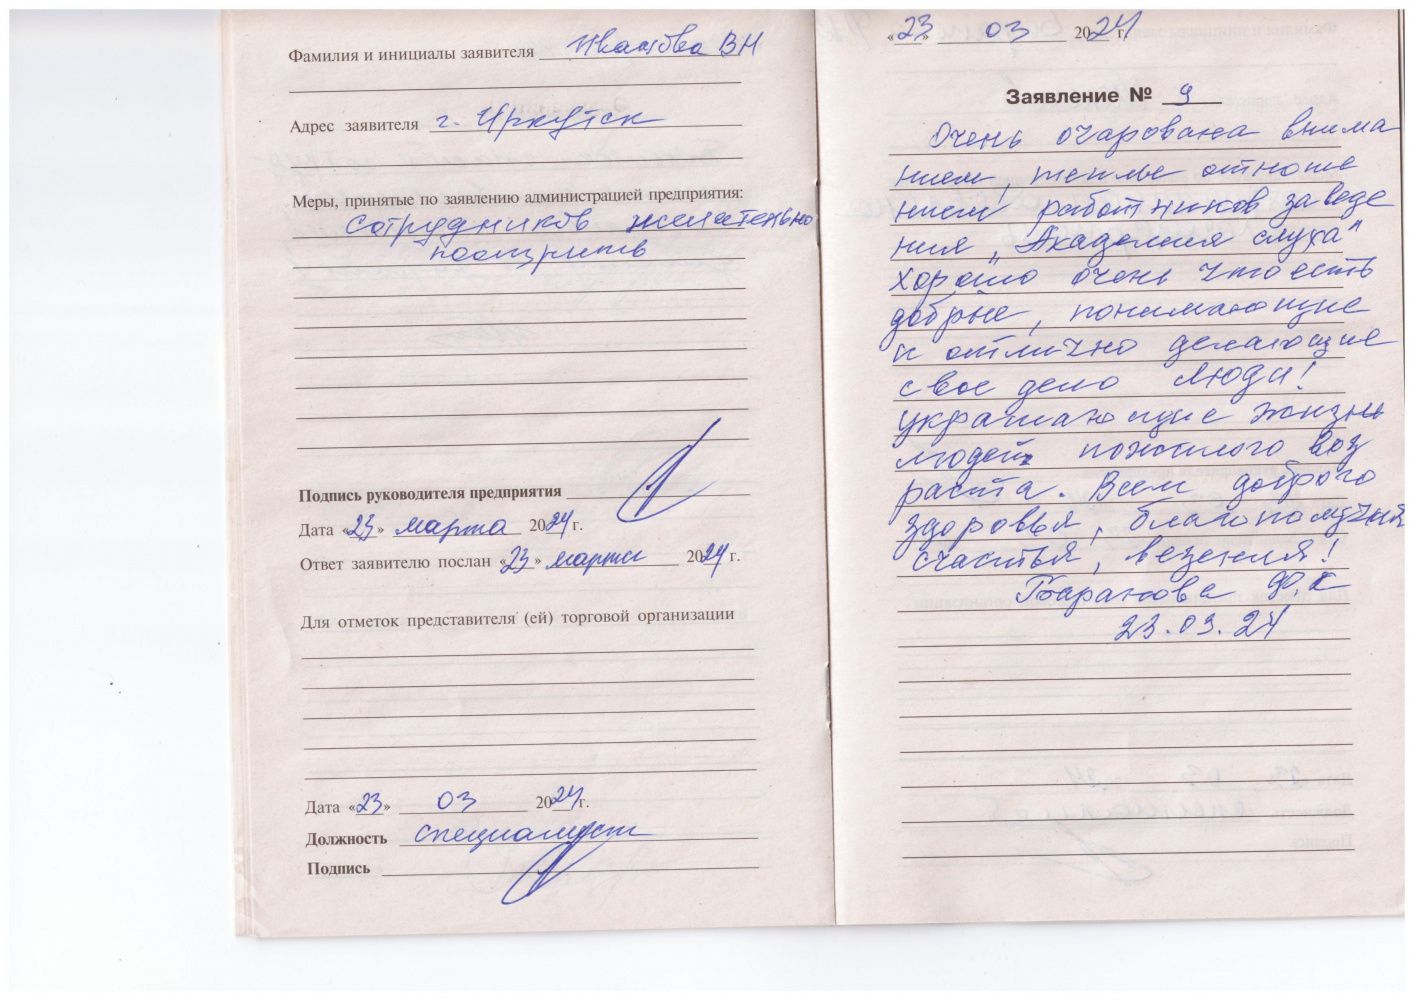 Фамилия и инициалы заявителя Иванова ВН
Адрес заявителя г. Иркутск
Меры, принятые по заявлению администрацией предприятия:
сотрудников желательно
поощрить
Подпись руководителя предприятия
Дата «23» марта 2024 г.
Ответ заявителю послан «23» марта 2024 г.
Для отметок представителя (ей) торговой организации
Дата «23» 03 2024 г.
Должность специалист
Подпись
«23» 03 2024 г.
Заявление № 9
Очень очарована внима
нием, теплые отноше
нием работников заведе
ния „Академия слуха"
хорошо очень что есть
добрые, понимающие
и отлично делающие
свое дело люди!
украшающие жизнь
людей пожилого воз
раста. Всем доброго
здоровья, благополучия
счастья, везения!
Баранова Ф.К
23.03.24